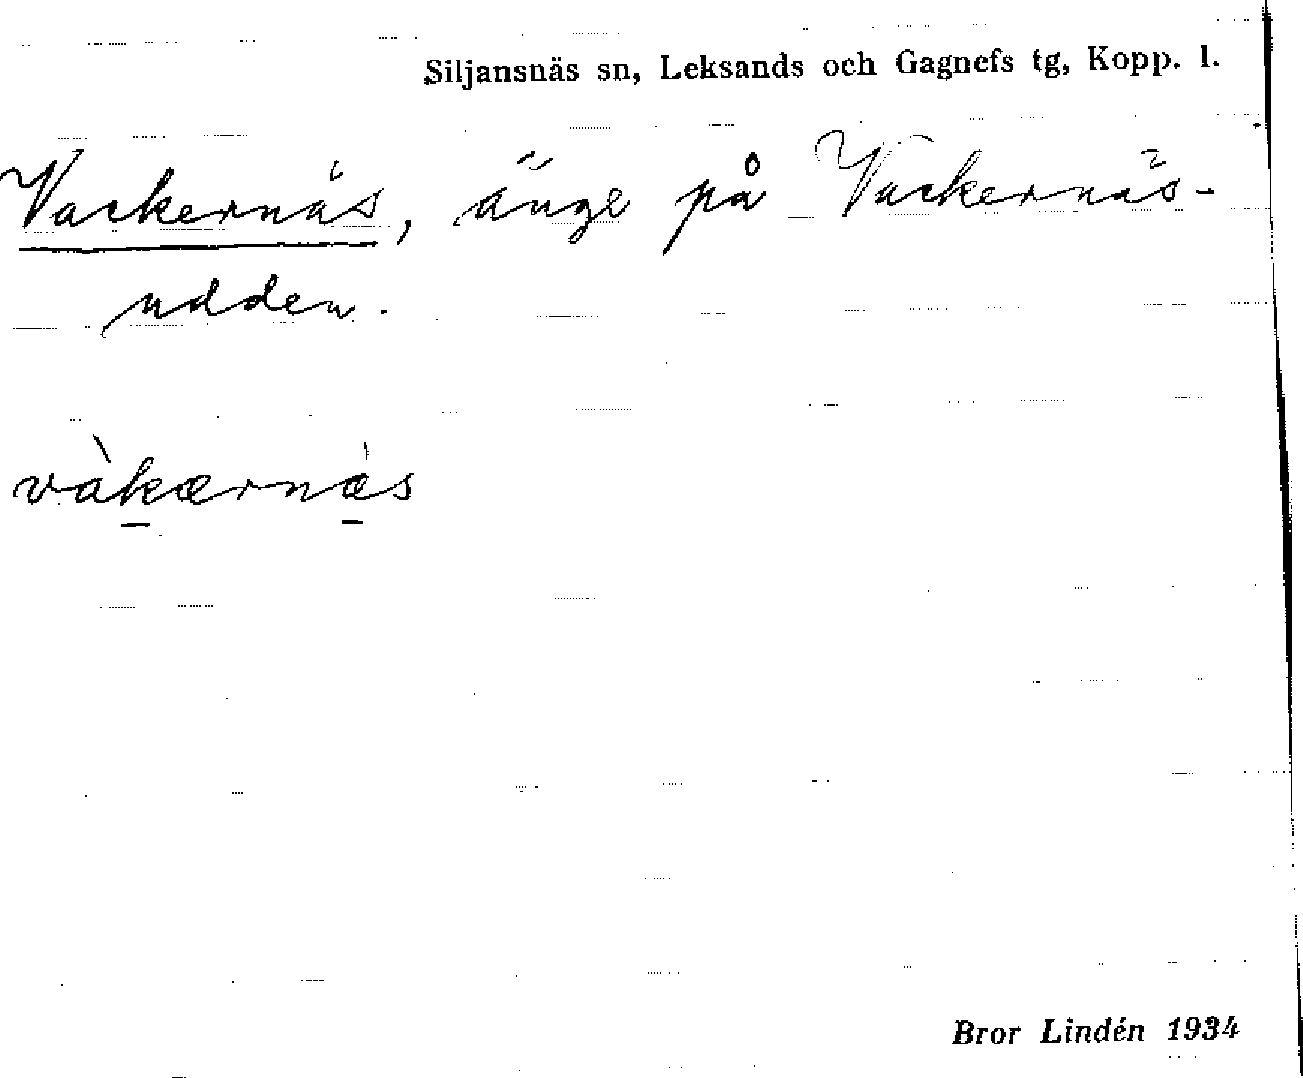 Siljansnäs sn, Leksands och Gagnefs tg, Kopp. l.
Vackernäs, änge på Vackernäs-
udden.
vàkærnàs
Bror Lindén 1934